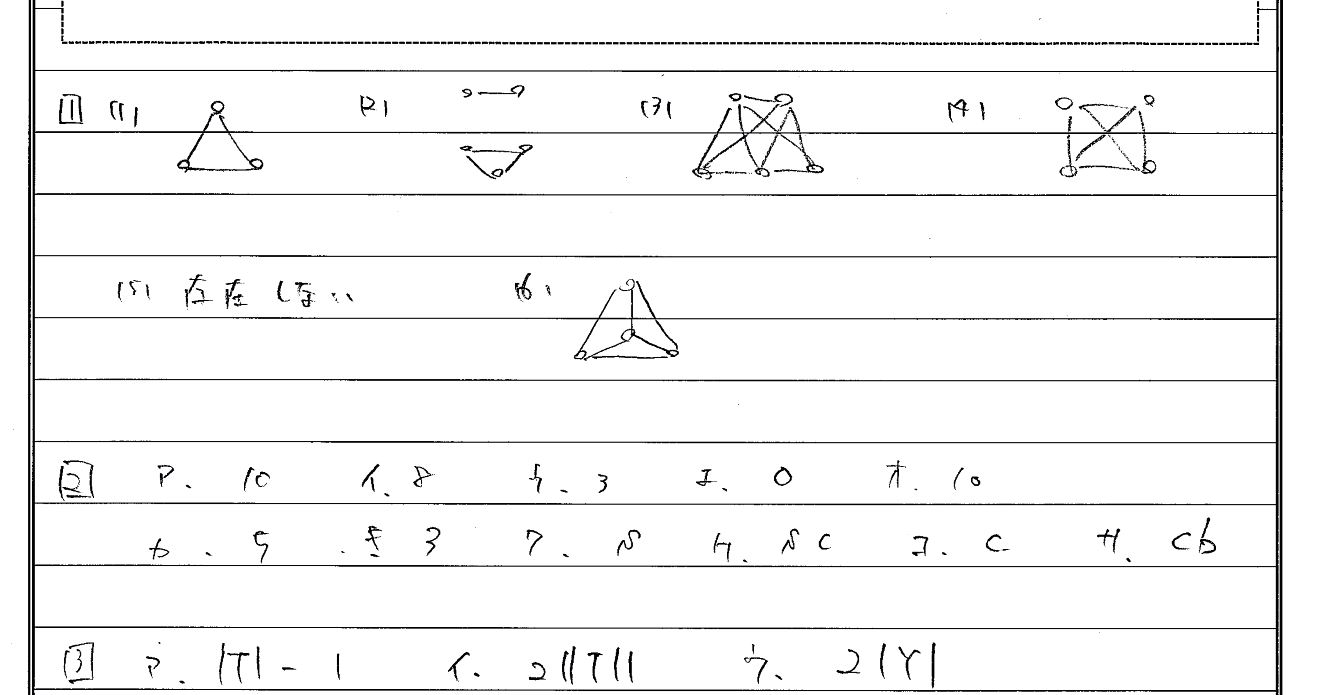 1 (1) (2) (3) (4)
(5) 存在しない (6)
2 ア. 10 イ. 8 ウ. 3 エ. 0 オ. 10
カ. 5 キ 3 ク. s ケ. sc コ. c サ. cb
3 ア. |T| - 1 イ. 2||T|| ウ. 2|Y|